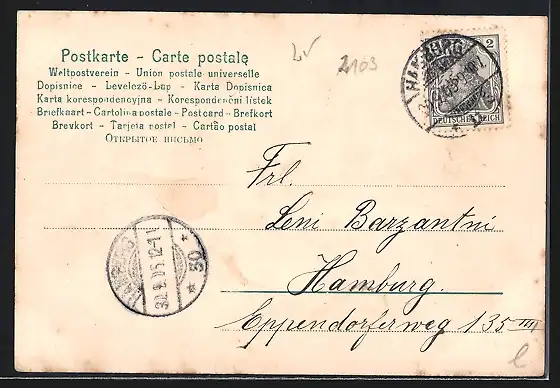 Postkarte - Carte postale
Weltpostverein - Union postale universelle
Dopisnice - Levelező-Lap - Karta Dopisnica
Karta korespondencyjna - Korespondenční lístek
Briefkaart - Cartolina postale - Postcard - Brefkort
Brevkort - Tarjeta postal - Cartão postal
Открытое письмо
LV
2103
HAMBURG
2
DEUTSCHES REICH
Frl.
Leni Barzantni
Hamburg.
Eppendorferweg 135 III
HAMBURG
30.9.05.12-1
* 30 *